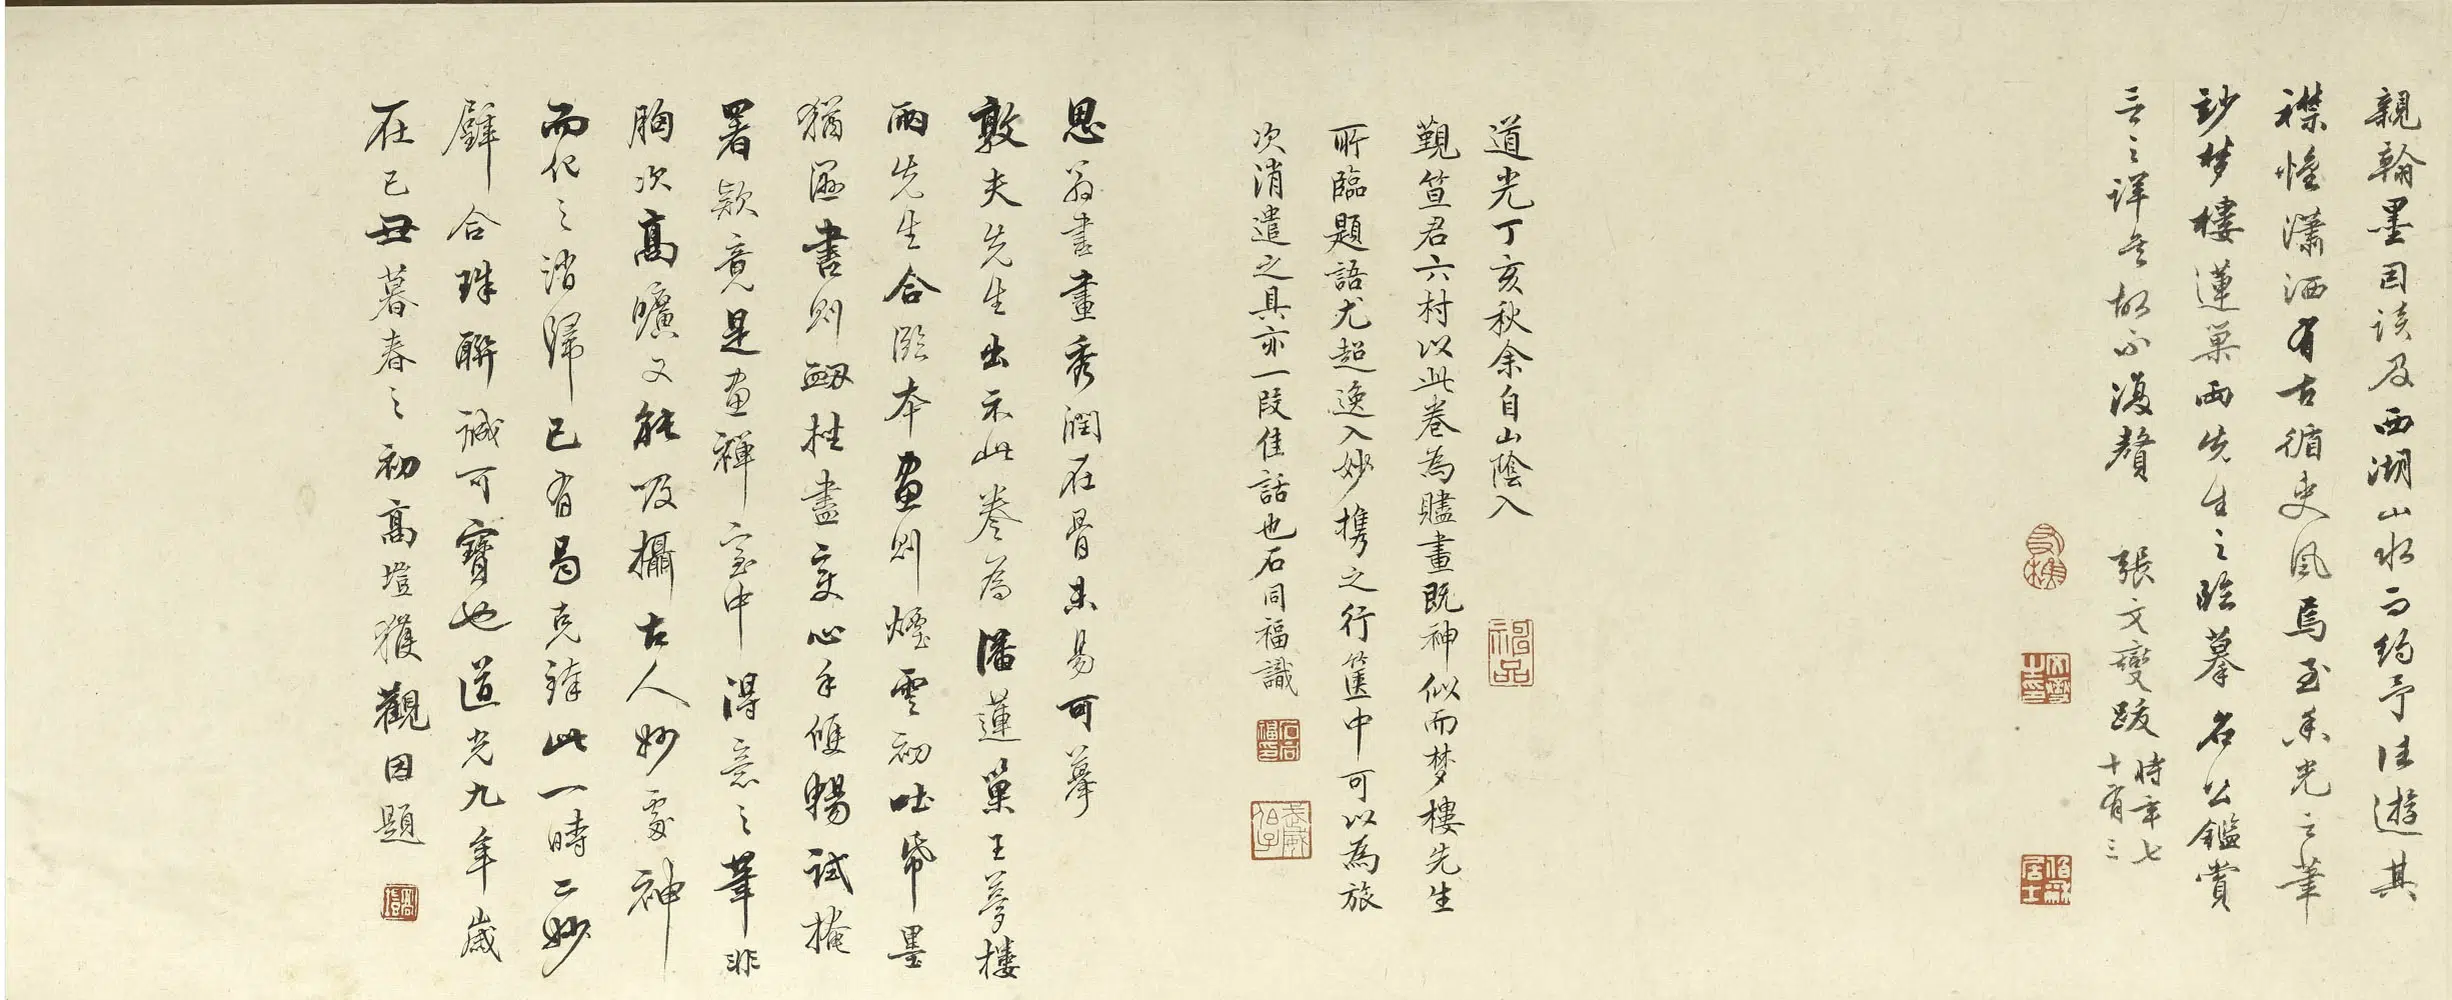 親翰墨因談及西湖山水而約予往遊其
襟懷瀟洒有古循吏風焉至香光之筆
妙夢樓蓮巢兩先生之臨摹名公鑑賞
言之詳矣故不復贅 張文燮跋 時年七
十有三
道光丁亥秋余自山陰入
覲笪君六村以此卷為贐畫既神似而梦樓先生
所臨題語尤超逸入妙携之行篋中可以為旅
次消遣之具亦一段佳話也石同福識
思翁書畫秀潤在骨未易可摹
敦夫先生出示此卷為潘蓮巢王夢樓
兩先生合臨本畫則煙雲初吐帋墨
猶溼書則 拙盡變心手雙暢試掩
署款竟是畫禪室中得意之筆非
胸次高曠又能吸攝古人妙處神
而化之消歸已有曷克臻此一時二妙
璧合珠聯誠可寶也道光九年歲
在己丑暮春之初高塏獲觀因題
石同
福印